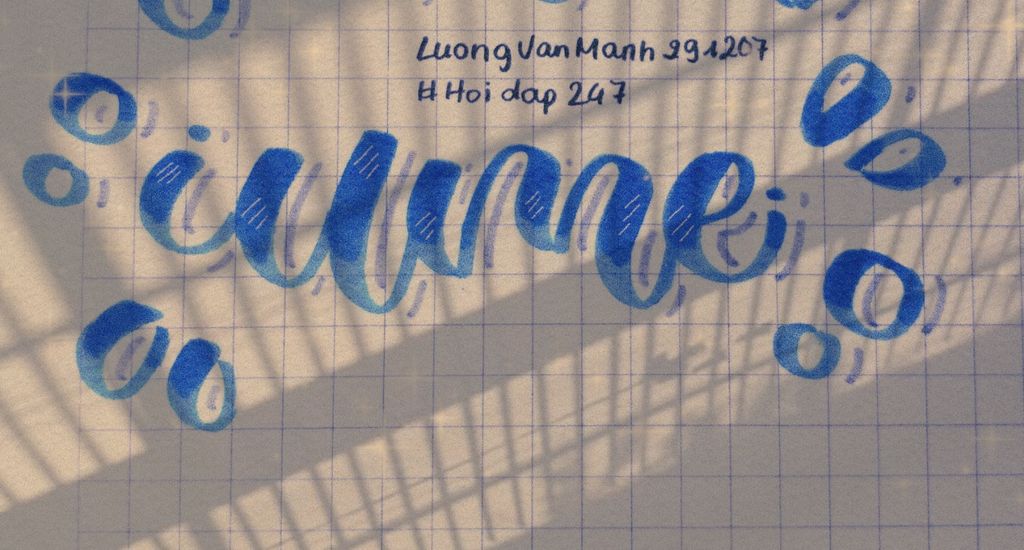 LuongVanManh291207
#Hoi dap 247
iumei